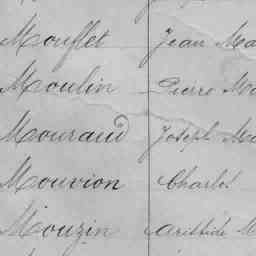 Mouflet Jean Ma
Moulin Pierre Ma
Mouraud Joseph Ma
Mouvion Charles
Mouzin Aristide M